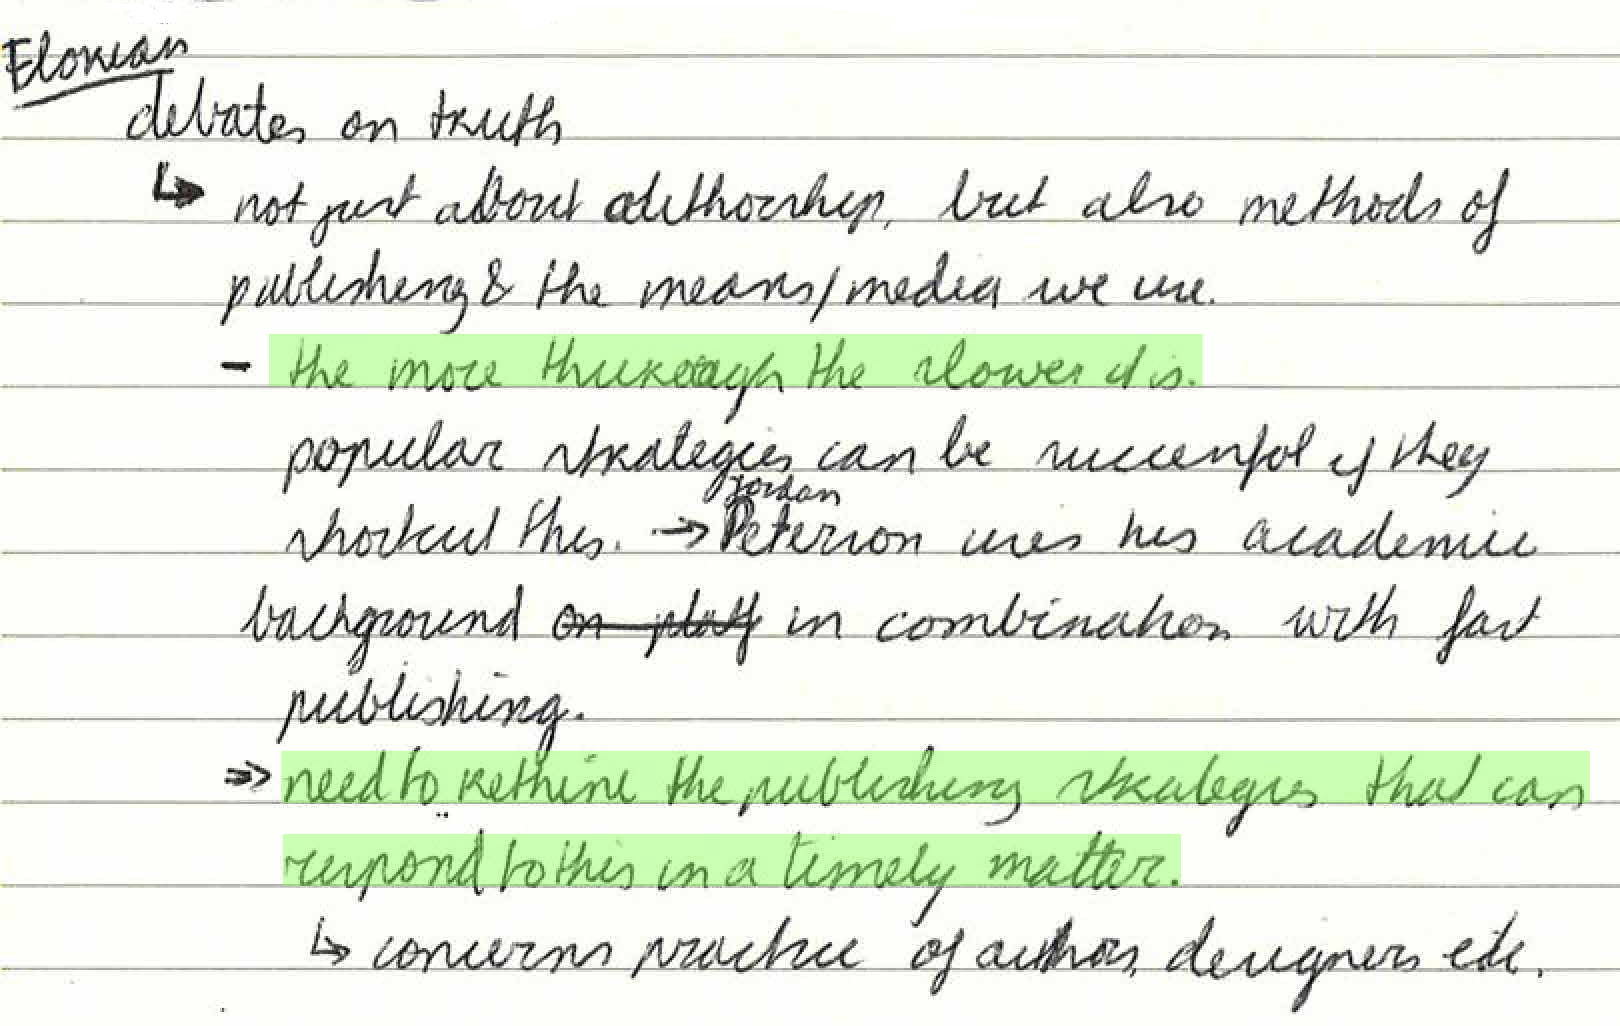 Florian
debates on truth
↳ not just about authorship, but also methods of
publishing & the means/media we use.
- the more thorough the slower it is.
popular strategies can be succesfol if they
shortcut this. → Jordan Peterson uses his academic
background on platf in combination with fast
publishing.
⇒ need to rethink the publishing strategies that can
respond to this in a timely matter.
↳ concerns practice of authors, designers etc.